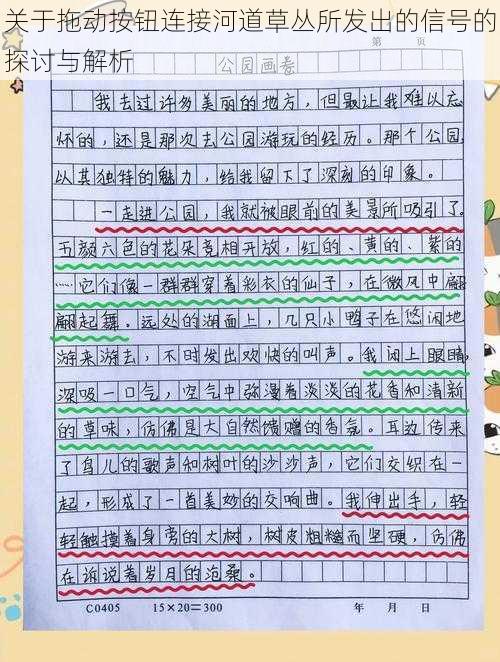 关于拖动按钮连接河道草丛所发出的信号的
探讨与解析
公园画卷
我去过许多美丽的地方，但最让我难以忘
怀的，还是那次去公园游玩的经历。那个公园，
以其独特的魅力，给我留下了深刻的印象。
一走进公园，我就被眼前的美景所吸引了。
五颜六色的花朵竞相开放，红的、黄的、紫的
……它们像一群群穿着彩衣的仙子，在微风中翩
翩起舞。远处的湖面上，几只小鸭子在悠闲地
游来游去，不时发出欢快的叫声。我闭上眼睛，
深吸一口气，空气中弥漫着淡淡的花香和清新
的草味，仿佛是大自然馈赠的香氛。耳边传来
了鸟儿的歌声和树叶的沙沙声，它们交织在一
起，形成了一首美妙的交响曲。我伸出手，轻
轻触摸着身旁的大树，树皮粗糙而坚硬，仿佛
在诉说着岁月的沧桑。
C0405 15×20=300 年 月 日